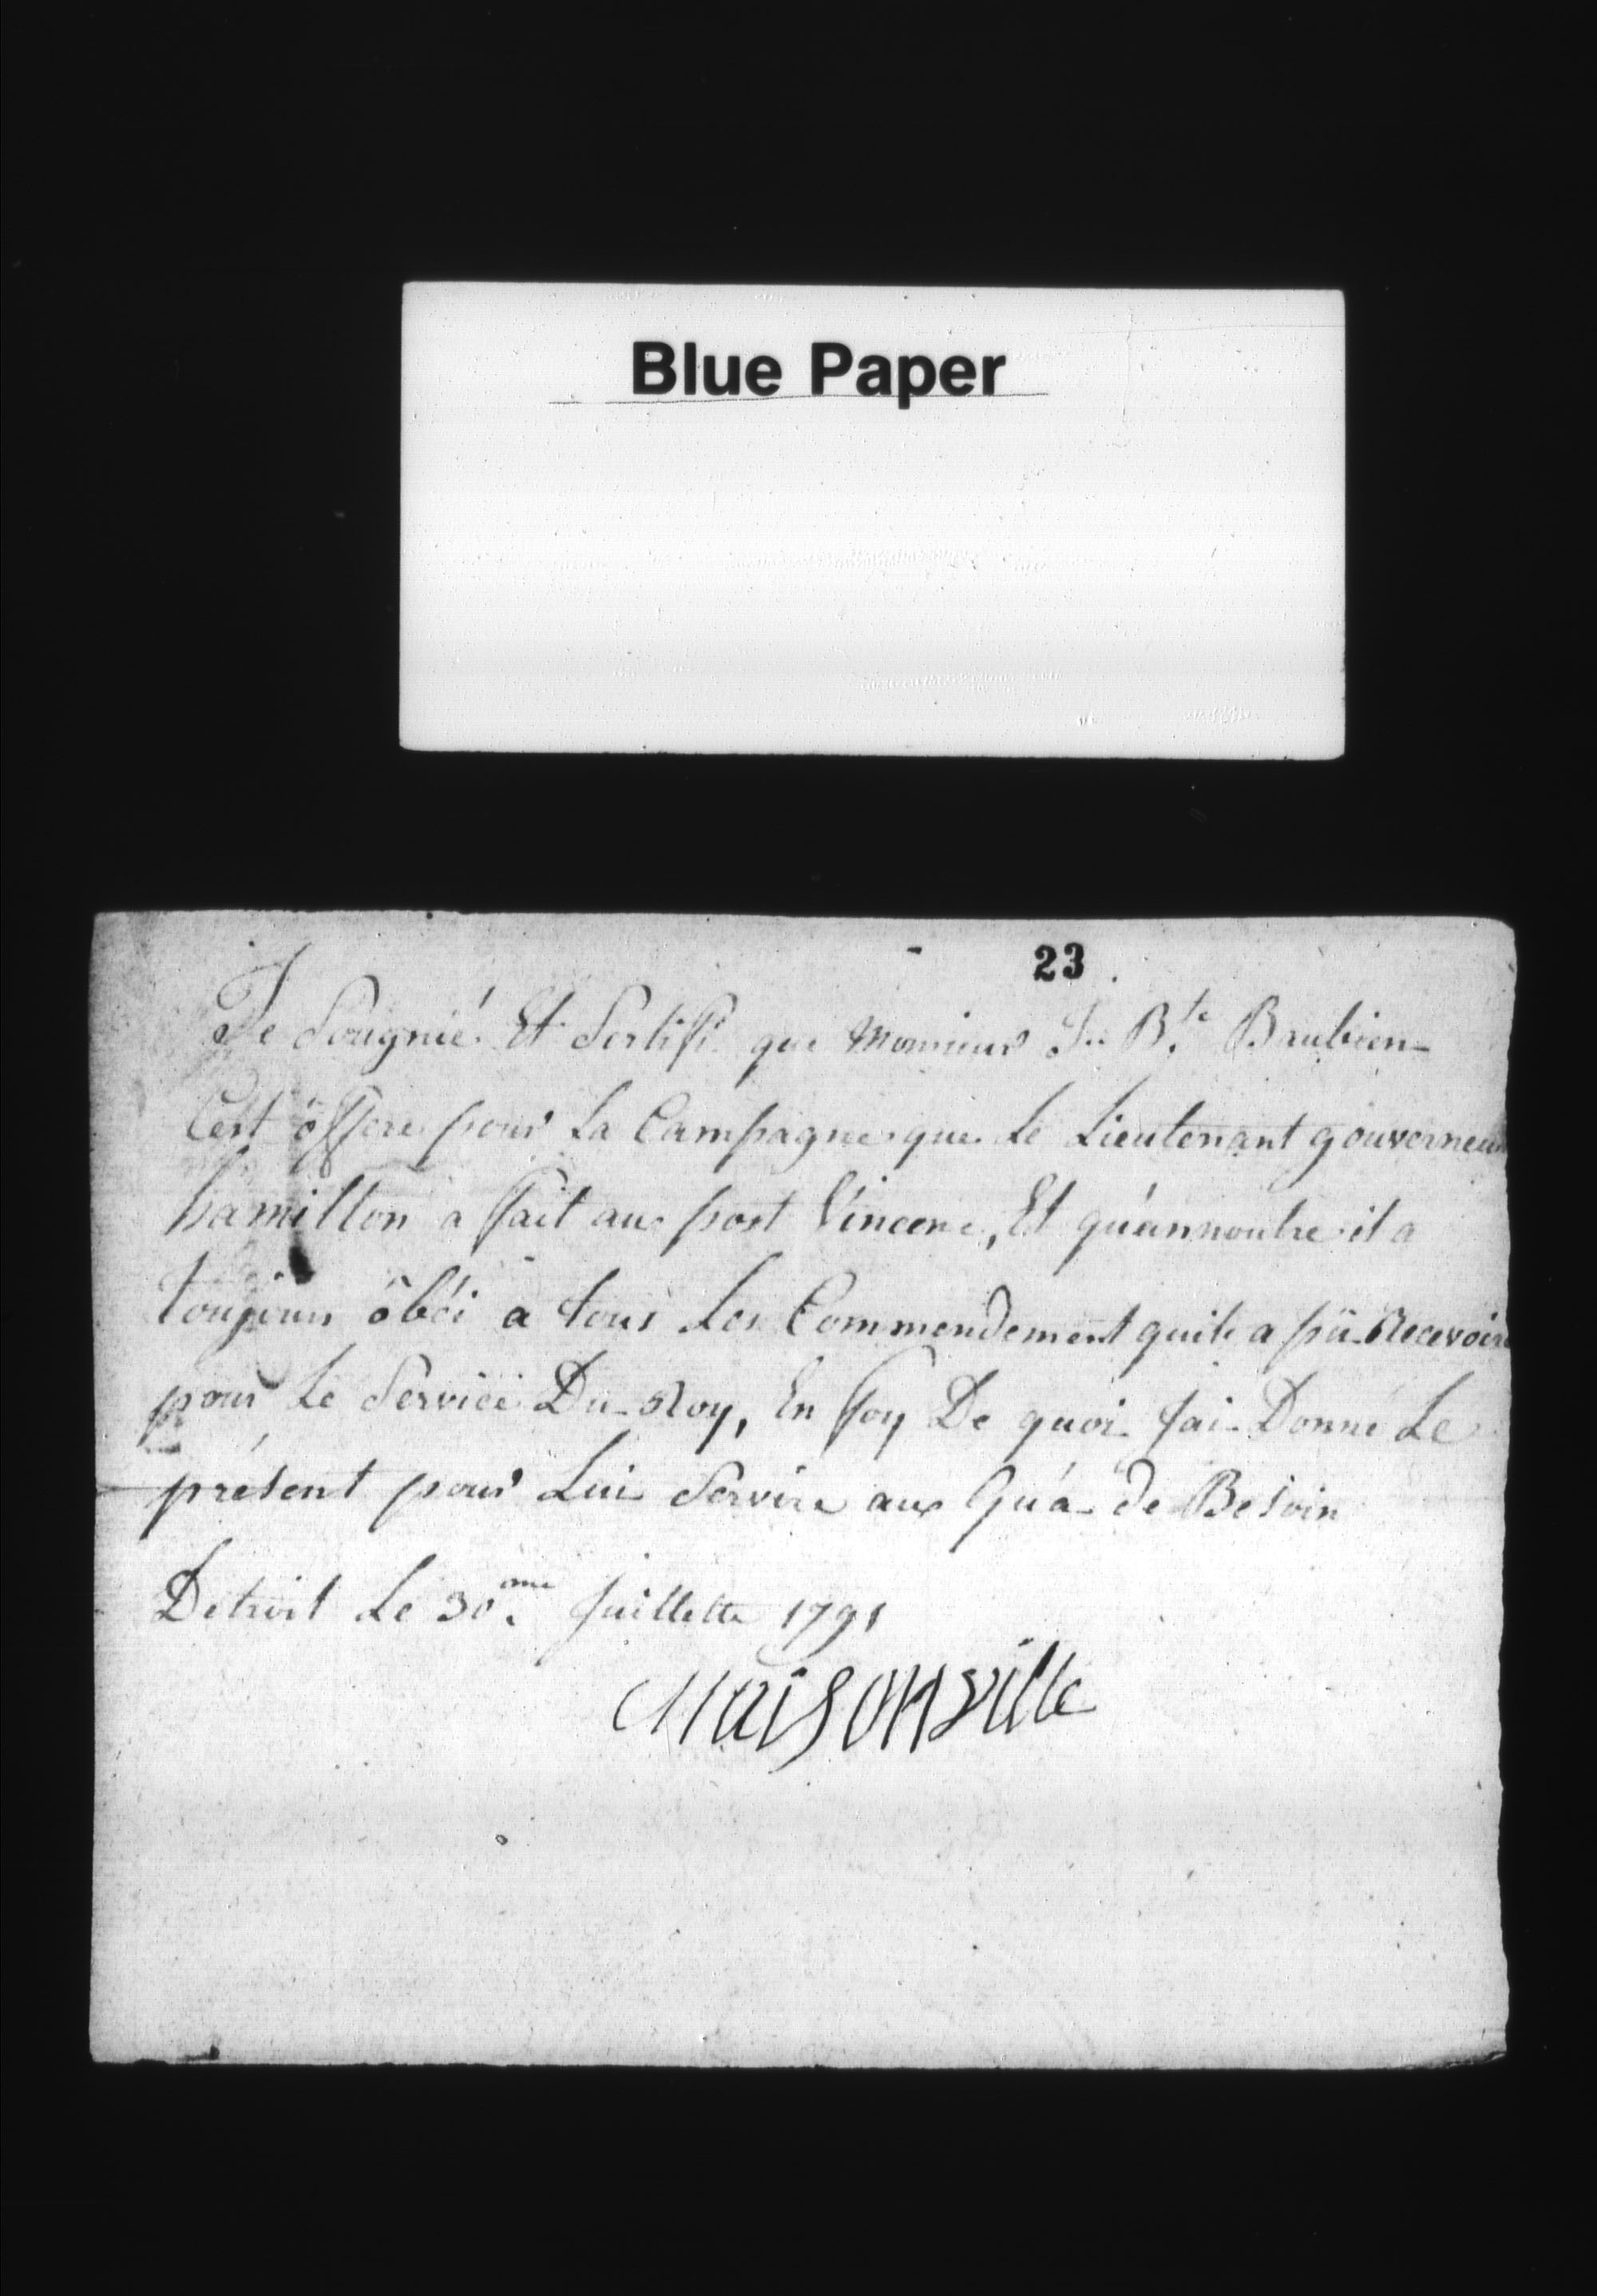 Blue Paper
23
Je Sougnié Et Sertifi que Monsieur Jn Bte Baubien
Cest öffere pour La Campagne que Le Lieutenant gouverneur
hamilton a fait au post Vincene, Et qu'annoutre il a
toujour ôbéi a tous Les Commendement quile a pü Recevoire
pour Le Service Du Roy, En foy De quoi Jai Donné Le
présent pour Lui Servire aux Qu'á de Besoin
Detroit Le 30.me Juillette 1791
Maisonville